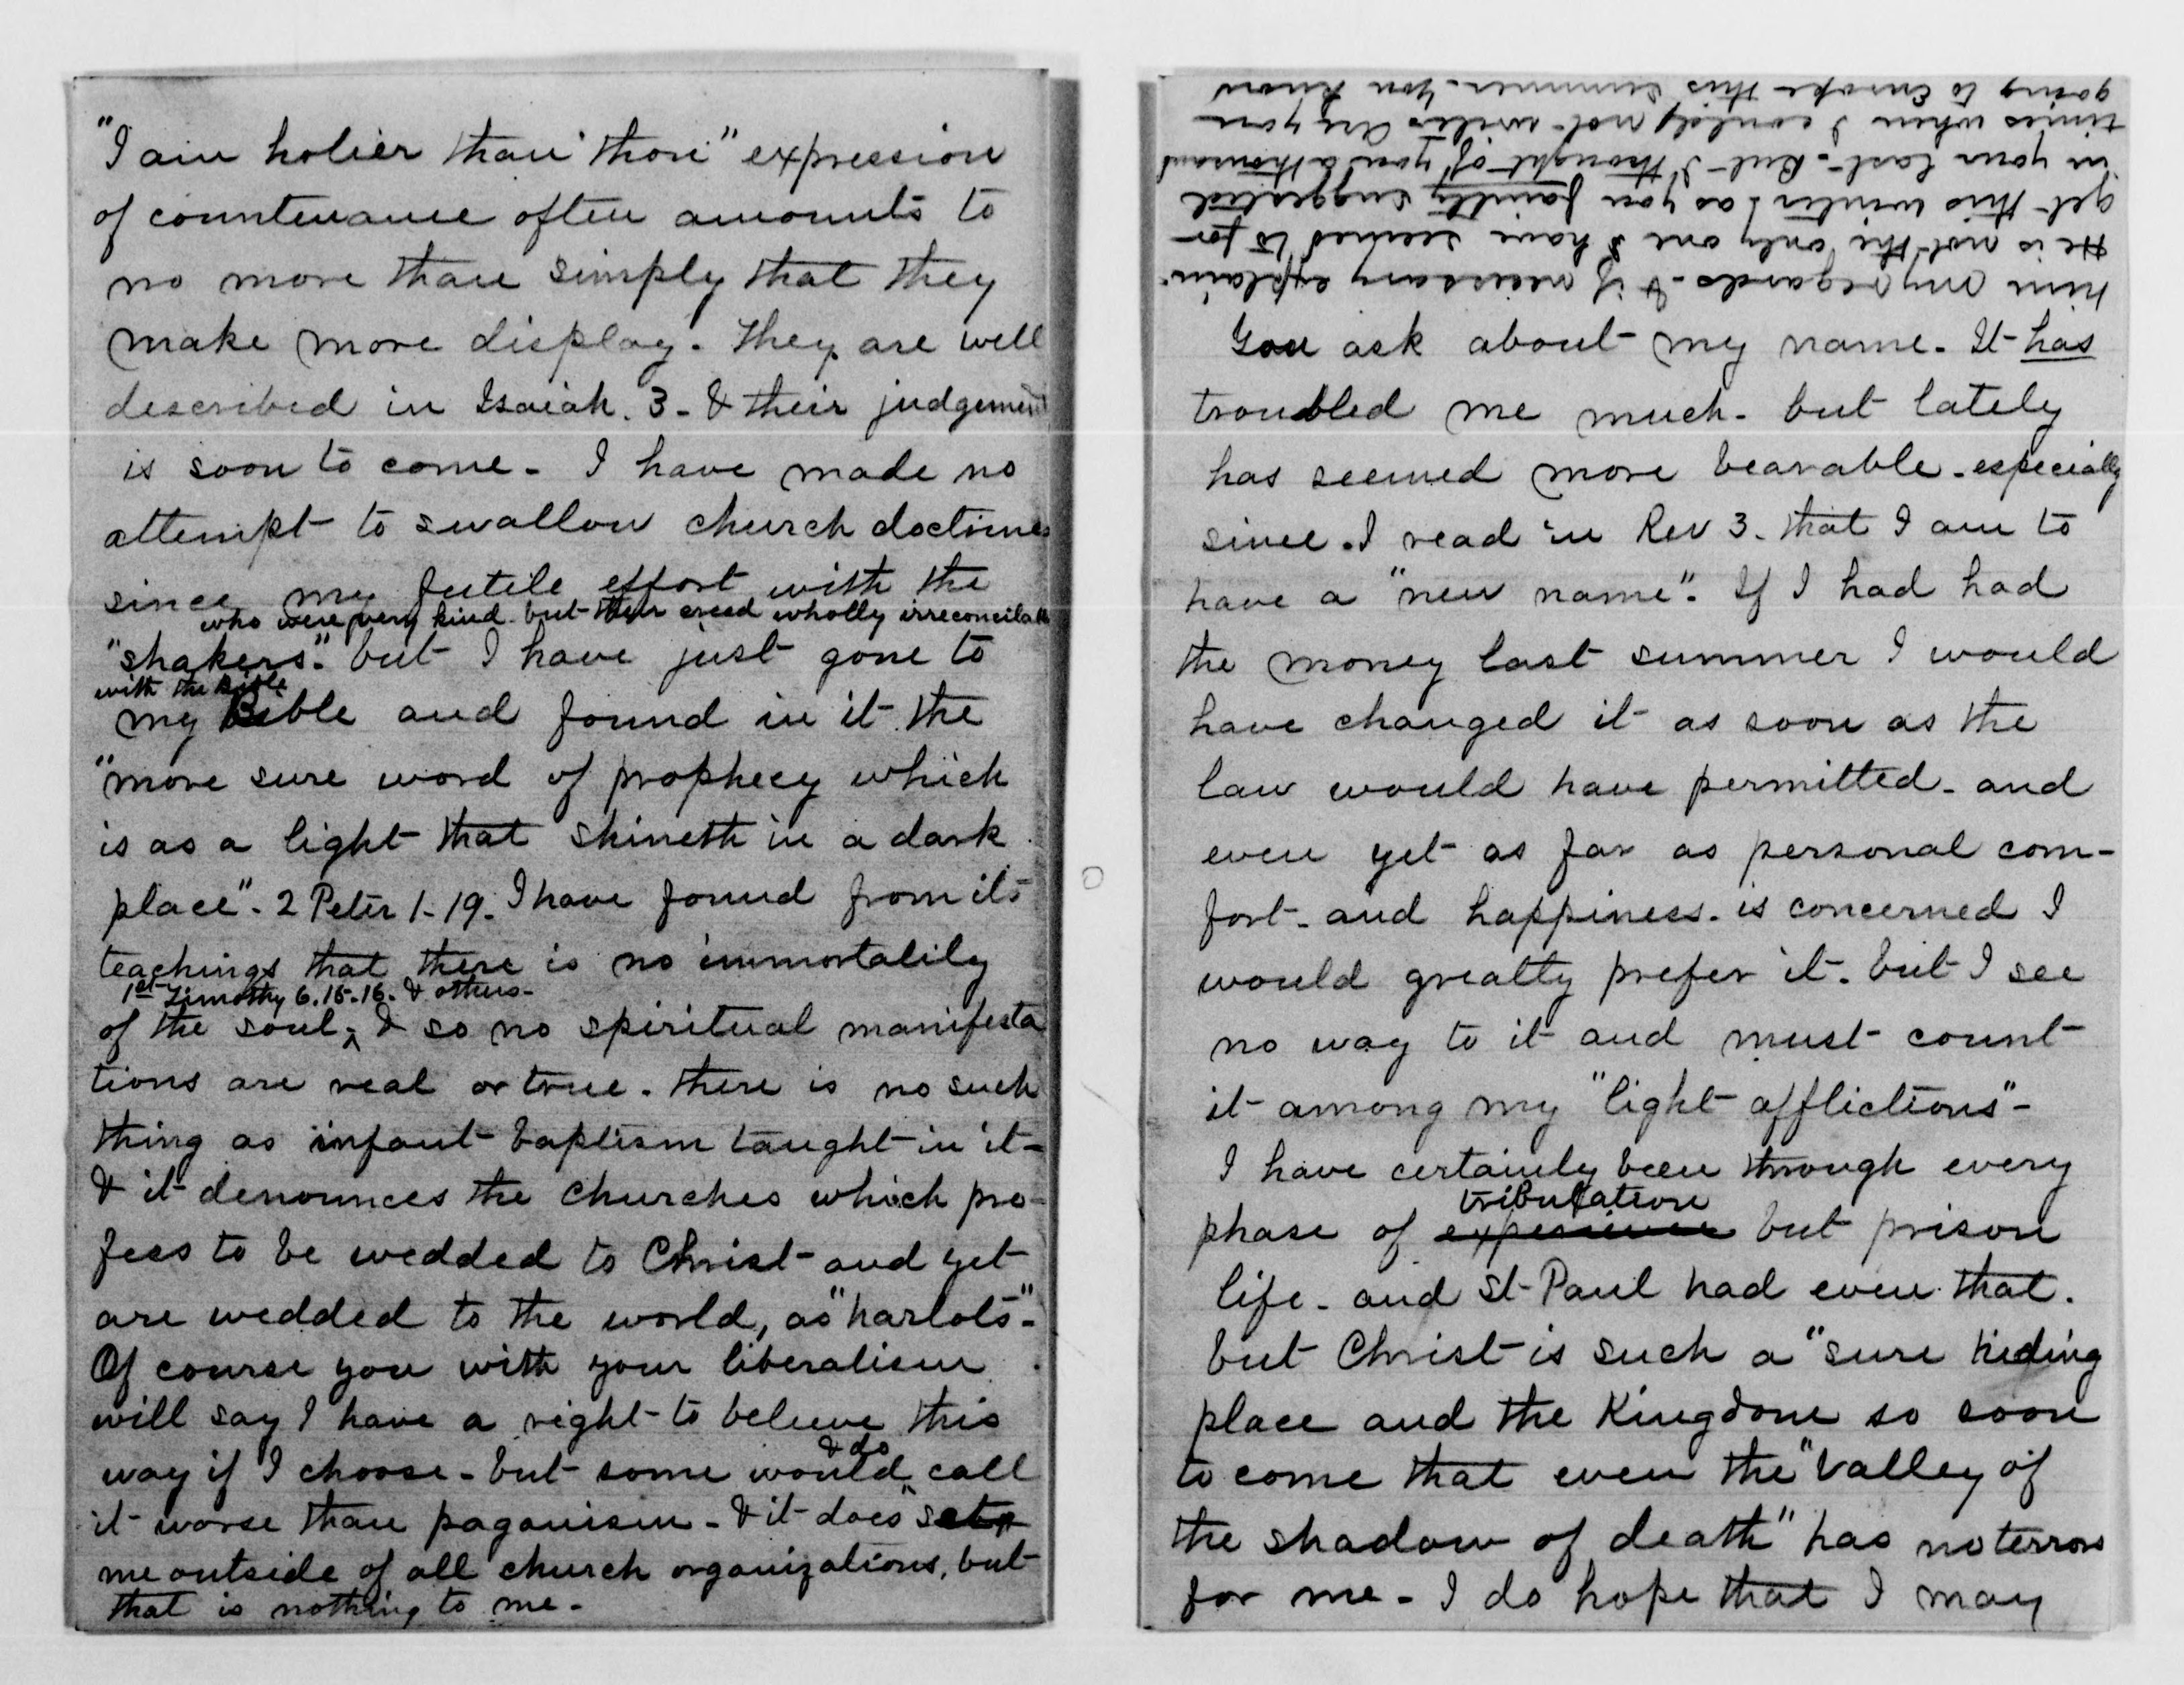 "I am holier than thou" expression
of countenance often amounts to
no more than simply that they
make more display. They are well
described in Isaiah. 3 - & their judgement
is soon to come - I have made no
attempt to swallow church doctrines
since my futile effort with the
who were very kind but their creed wholly irreconcilable
"shakers". but I have just gone to
with the Bible
my Bible and found in it the
"more sure word of prophecy which
is as a light that shineth in a dark
place". 2 Peter 1-19. I have found from its
teachings that there is no immortality
1st Timothy 6.15-16. & others-
of the soul, & so no spiritual manifesta
tions are real or true. there is no such
thing as infant baptism taught in it -
& it denounces the churches which pro-
fess to be wedded to Christ and yet
are wedded to the world, as "harlots"-
Of course you with your liberalism
will say I have a right to believe this
& do
way if I choose - but some would call
it worse than paganism - & it does sets
me outside of all church organizations, but
that is nothing to me -
him my regards - & if necessary explain.
He is not the only one I have seemed to for-
get this winter, as you faintly suggested
in your last - But I thought of you a thousand
times when I could not write. Are you
going to Europe this summer. You know
You ask about my name. It has
troubled me much - but lately
has seemed more bearable - especially
since I read in Rev 3. that I am to
have a "new name". If I had had
the money last summer I would
have changed it as soon as the
law would have permitted - and
even yet as far as personal com-
fort - and happiness - is concerned I
would greatly prefer it. but I see
no way to it and must count
it among my "light afflictions"-
I have certainly been through every
tribulation
phase of experience but prison
life - and St Paul had even that.
but Christ is such a "sure hiding
place and the Kingdom so soon
to come that even the "valley of
the shadow of death" has no terrors
for me - I do hope that I may